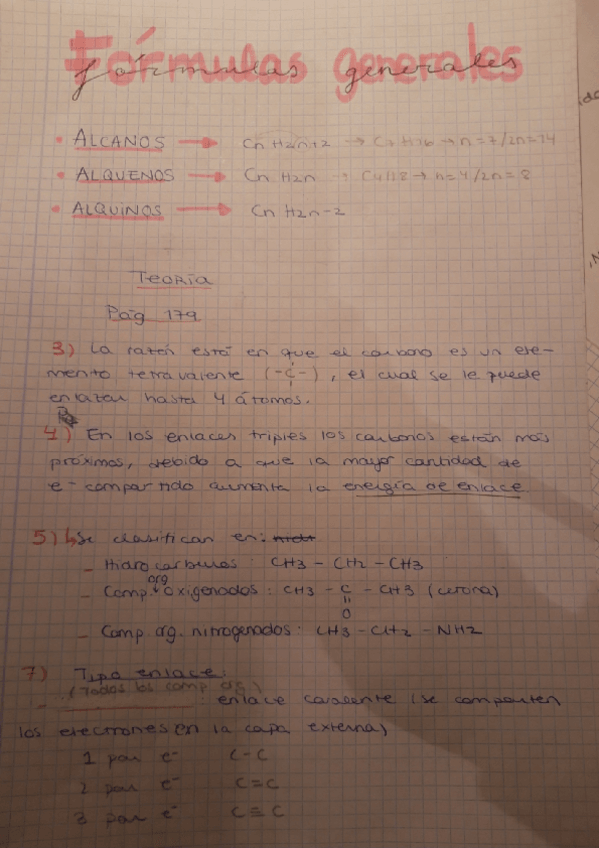 Fórmulas generales
• ALCANOS → CnH2n+2 → C7H16 → n=7/2n=14
• ALQUENOS → CnH2n → C4H8 → n=4/2n=8
• ALQUINOS → CnH2n-2
TEORÍA
Pág 179
3) La razón está en que el carbono es un ele-
mento tetravalente (-C-), el cual se le puede
enlazar hasta 4 átomos.
4) En los enlaces triples los carbonos están más
próximos, debido a que la mayor cantidad de
e- compartido aumenta la energía de enlace
5) ↳ Se clasifican en:
- Hidrocarburos: CH3 - CH2 - CH3
- Comp. org oxigenados: CH3 - C - CH3 (cetona)
=
O
- Comp org. nitrogenados: CH3 - CH2 - NH2
7) Tipo enlace:
(Todos los comp org)
: enlace covalente (se comparten
los electrones en la capa externa)
1 par e- C-C
2 par e- C=C
3 par e- C≡C